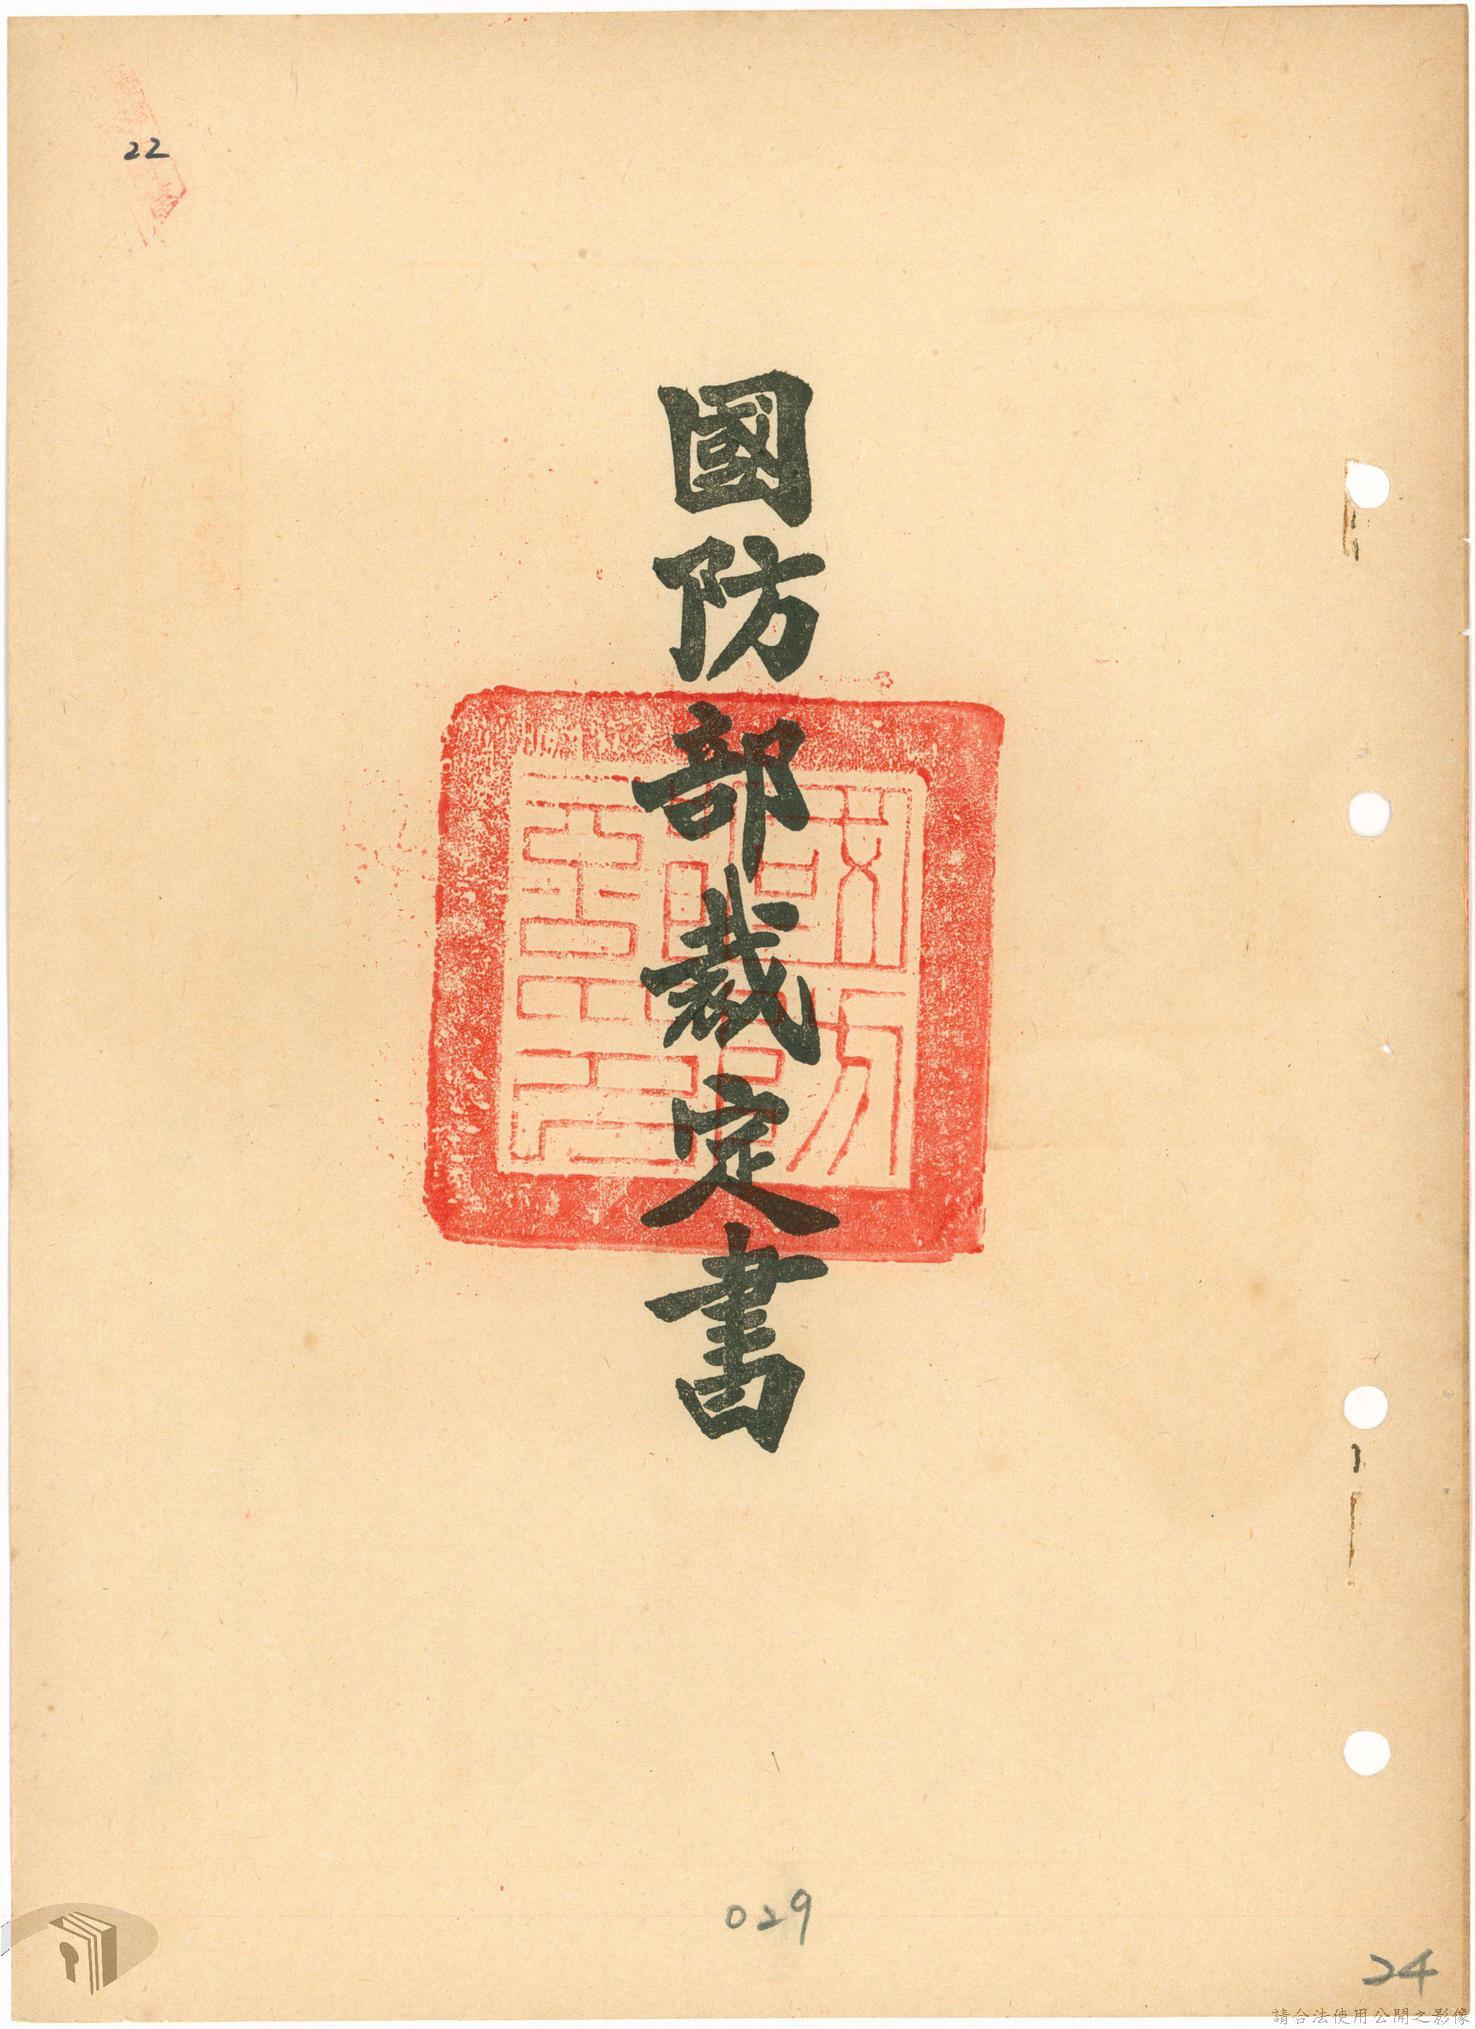 22
國防部裁定書
029
24
請合法使用公開之影像